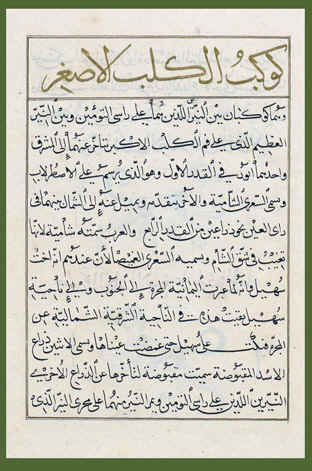 كوكبة الكلب الاصغر
وهما كوكبان بين النيرين اللذين هما على راسى التومين وبين النير
العظيم الذي على فم الكلب الاكبر تأخر عنهما إلى المشرق
واحدهما أنور في القدر الاول وهو الذي يرسم على الاصطرلاب
وسمى الشعرى الشامية والآخر يتقدمه ويميل عنه إلى الشمال منهما في
راى العين نحو ذراعين من القدر الرابع والعرب سمته شامية لانها
تغيب في شق الشام وسميه الشعرى الغميصا لأن عندهم انها اخت
سهيل وانها عبرت اليمانية المجرة إلى الجنوب ناحية
سهيل وبقيت هذه في الناحية الشرقية الشمالية عن
المجرة فبكت على سهيل حتى غمضت عيناها وسمى الاثنين ذراع
الاسد المقبوضة سميت مقبوضة لتأخرها عن الذراع الاخرى
النيرين اللذين على راسى التومين وممر النير منهما على مجرى النير الذي